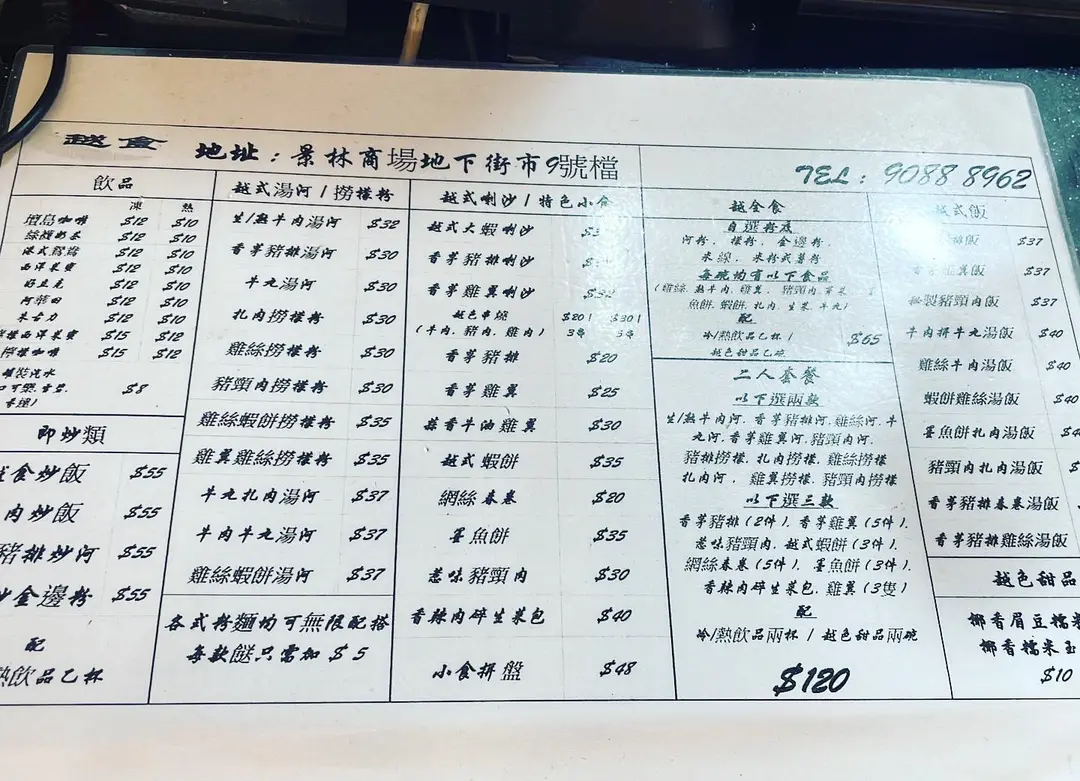 越食 地址：景林商場地下街市9號檔
TEL：9088 8962
飲品
凍 熱
咖啡 $12 $10
奶茶 $12 $10
港式鴛鴦 $12 $10
西洋菜蜜 $12 $10
好立克 $12 $10
阿華田 $12 $10
朱古力 $12 $10
西洋菜蜜 $15 $12
檸檬咖啡 $15 $12
罐裝汽水
可樂.
$8
即炒類
食炒飯 $55
肉炒飯 $55
豬排炒河 $55
炒金邊粉 $55
配
熱飲品乙杯
越式湯河/撈檬粉
生/熟牛肉湯河 $32
香茅豬排湯河 $30
牛丸湯河 $30
扎肉撈檬粉 $30
雞絲撈檬粉 $30
豬頸肉撈檬粉 $30
雞絲蝦餅撈檬粉 $35
雞翼雞絲撈檬粉 $35
牛丸扎肉湯河 $37
牛肉牛丸湯河 $37
雞絲蝦餅湯河 $37
各式粉麵均可無限配搭
每款餸只需加 $5
越式喇沙/特色小食
越式大蝦喇沙
香茅豬排喇沙
香茅雞翼喇沙 $32
越色串燒 $20/ $30/
(牛肉,豬肉,雞肉) 3串
香茅豬排 $20
香茅雞翼 $25
蒜香牛油雞翼 $30
越式蝦餅 $35
網絲春卷 $20
墨魚餅 $35
惹味豬頸肉 $30
香辣肉碎生菜包 $40
小食拼盤 $48
越全食
自選粉底
河粉, 檬粉, 金邊粉,
米線, 米粉或蕃粉
每碗均有以下食品
(雞絲,熟牛肉,雞翼,豬頸肉
魚餅,蝦餅,扎肉,生菜,牛丸)
配
冷/熱飲品乙杯/ $65
越色甜品乙碗
二人套餐
以下選兩款
生/熟牛肉河, 香茅豬排河,雞絲河,牛
丸河,香茅雞翼河,豬頸肉河,
豬排撈檬, 扎肉撈檬, 雞絲撈檬
扎肉河, 雞翼撈檬, 豬頸肉撈檬
以下選三款
香茅豬排(2件), 香茅雞翼(5件),
惹味豬頸肉, 越式蝦餅(3件),
網絲春卷(5件), 墨魚餅(3件),
香辣肉碎生菜包, 雞翼(3隻)
配
冷/熱飲品兩杯/越色甜品兩碗
$120
越式飯
排飯 $37
香茅雞翼飯 $37
秘製豬頸肉飯 $37
牛肉拼牛丸湯飯 $40
雞絲牛肉湯飯 $40
蝦餅雞絲湯飯 $40
墨魚餅扎肉湯飯
豬頸肉扎肉湯飯
香茅豬排春卷湯飯
香茅豬排雞絲湯飯
越色甜品
椰香眉豆糯
椰香糯米玉
$10